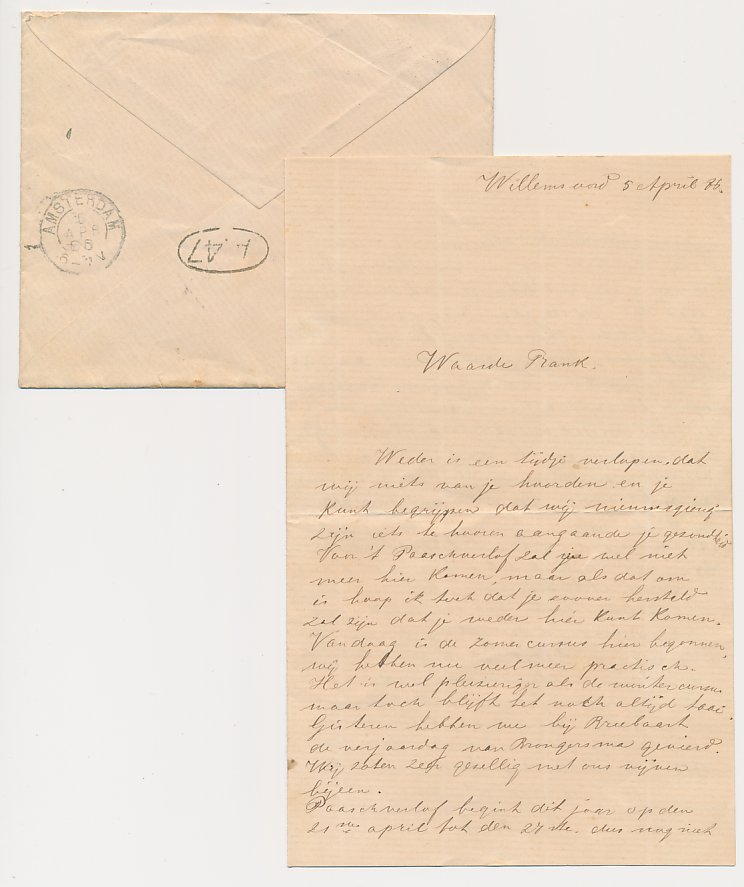 AMSTERDAM
APR
86
L.47
Willemsoord 5 April 86.
Waarde Frank.
Weder is een tijdje verlopen, dat
wij niets van je hoorden en je
kunt begrijpen dat wij nieuwsgierig
zijn iets te hooren aangaande je gezondheid
Voor 't Paaschverlof zal je wel niet
meer hier komen, maar als dat om
is hoop ik toch dat je zoover hersteld
zal zijn dat je weder hier kunt komen.
Vandaag is de zomercursus hier begonnen,
wij hebben nu veel meer practisch.
Het is wel pleizieriger als de wintercursus
maar toch blijft het noch altijd taai.
Gisteren hebben we bij
de verjaardag van Brongersma gevierd.
Wij zaten zeer gezellig met ons vijven
bijeen.
Paaschverlof begint dit jaar op den
21 ste april tot den 27 ste. dus nog niet